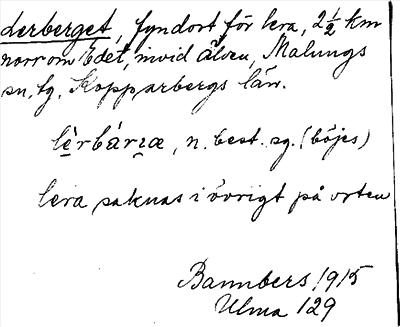 Lerberget, fyndort för lera, 2½ km
norr om Edet, invid älven, Malungs
sn. tg. Kopparbergs län.
lèrbárıæ, n. best. sg. (böjes)
lera saknas i övrigt på orten
Bannbers 1915
Ulma 129